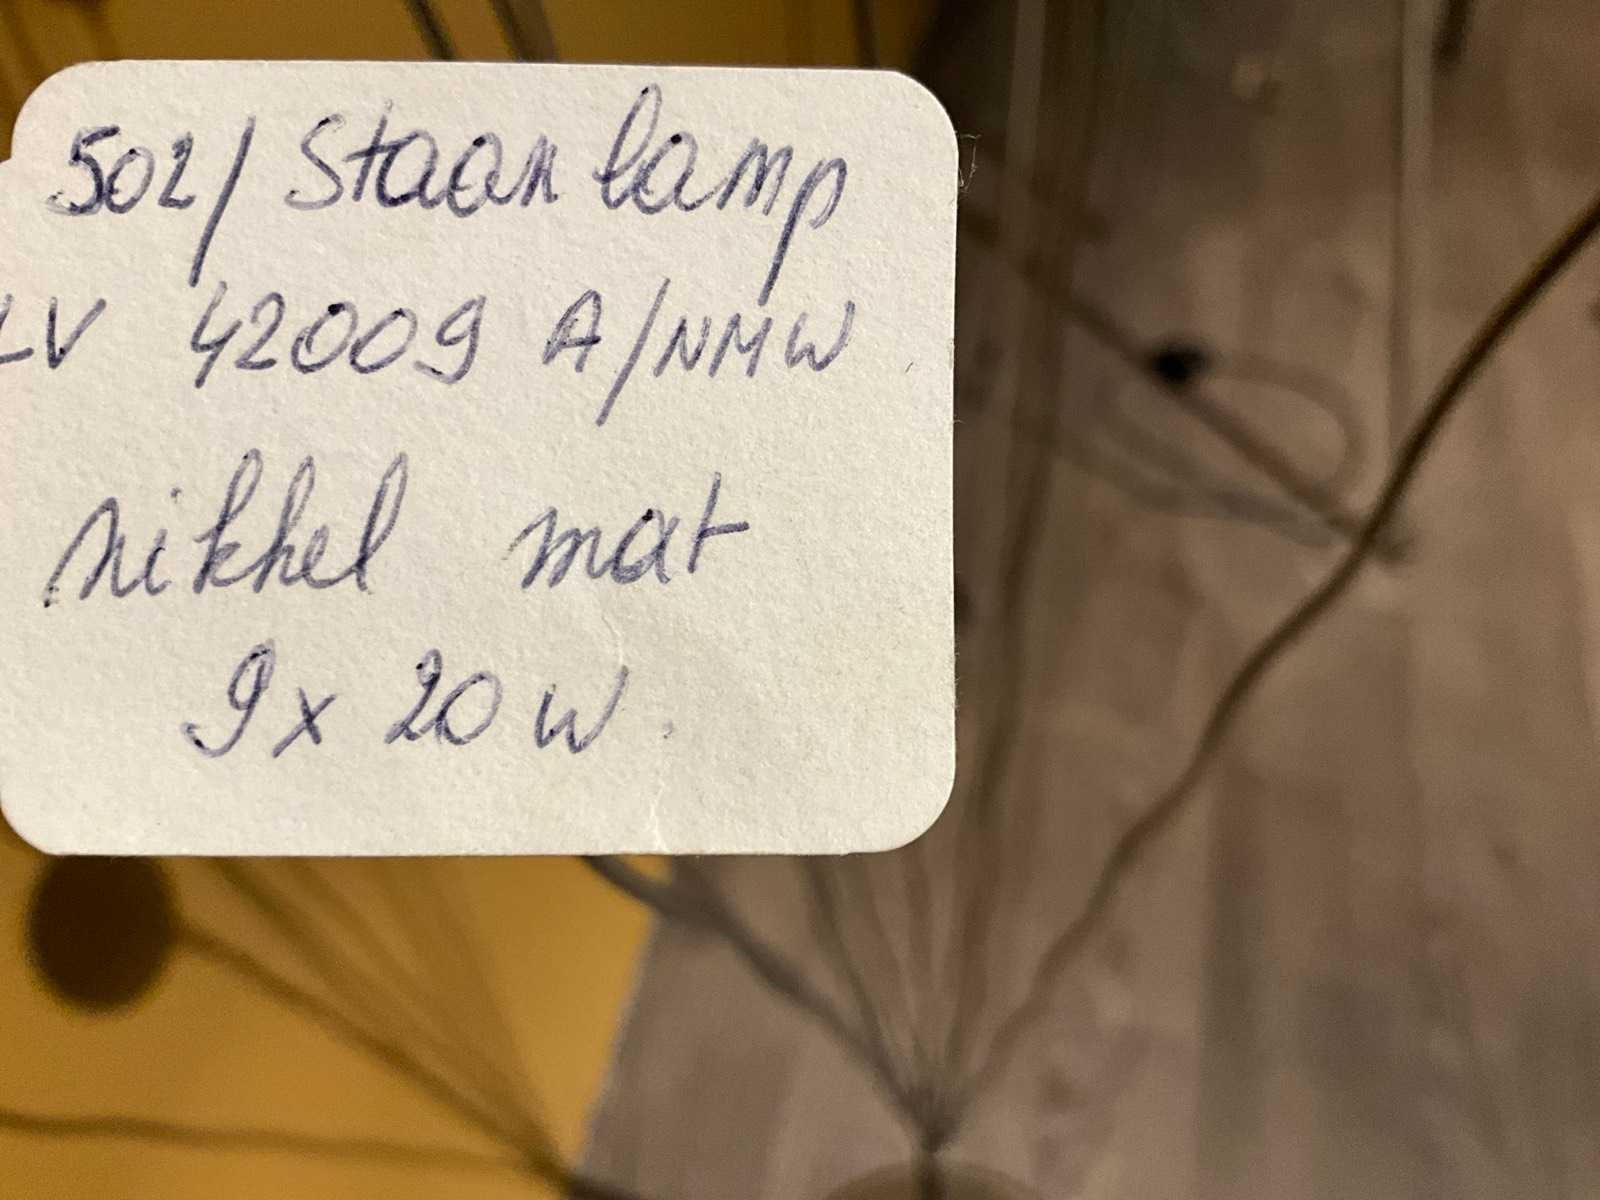 502/ Staanlamp
LV 42009 A/NMW
nikkel mat
9x 20 W.